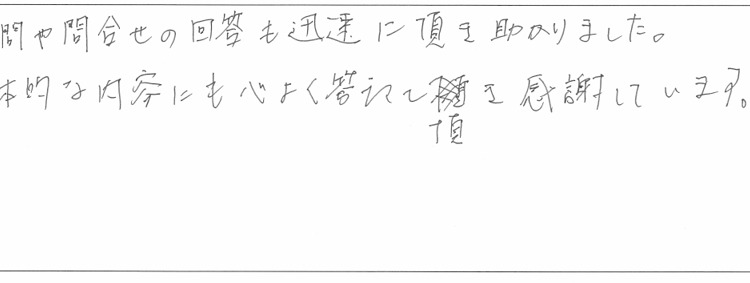 問や問合せの回答も迅速に頂き助かりました。
本的な内容にも心よく答えて頂き感謝しています。